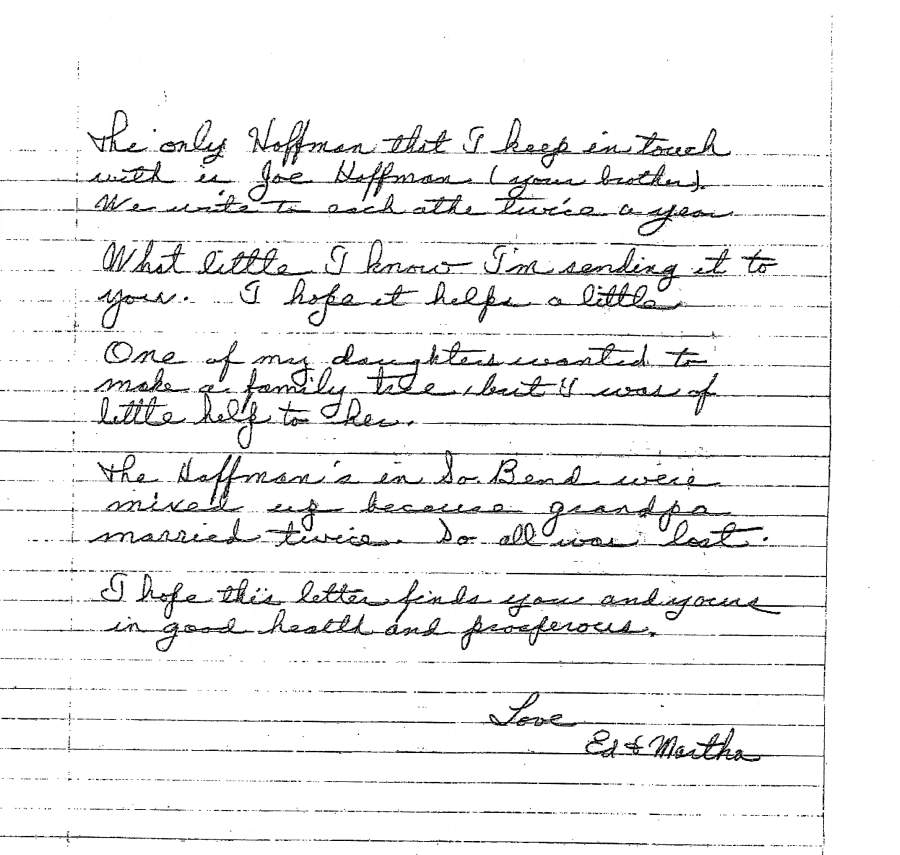 The only Hoffman that I keep in touch
with is Joe Hoffman (your brother).
We write to each othe twice a year
What little I know I'm sending it to
you. I hope it helps a little
One of my daughters wanted to
make a family tree, but I was of
little help to her.
The Hoffman's in So. Bend were
mixed up because grandpa
married twice. So all was lost.
I hope this letter finds you and yours
in good health and prosperous.
Love
Ed & Martha